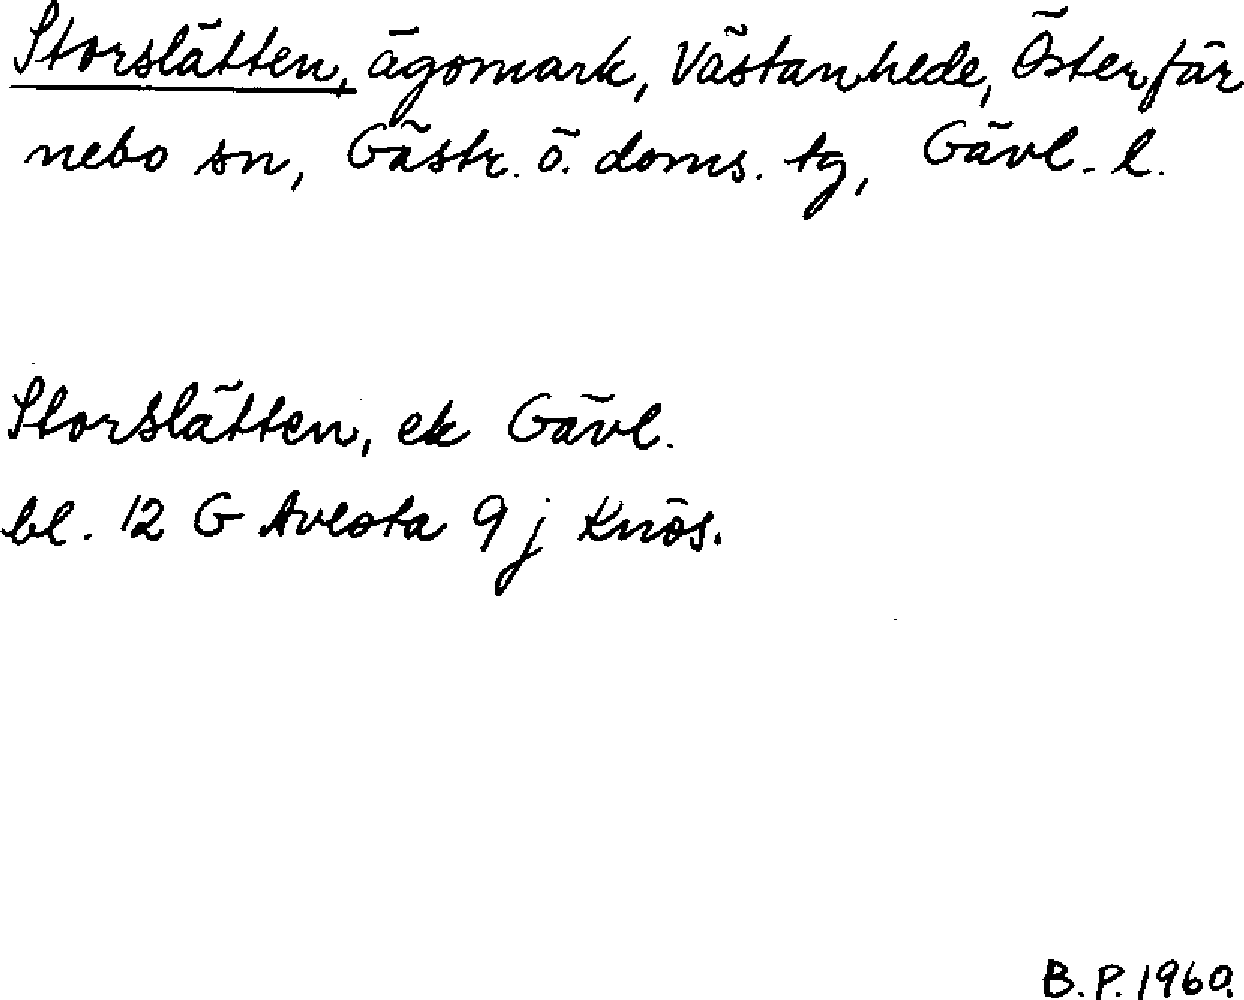 Storslätten, ägomark, Västanhede, Österfär
nebo sn, Gästr. ö. doms. tg, Gävl. l.
Storslätten, ek Gävl.
bl. 12 G Avesta 9 j Knös.
B.P. 1960.